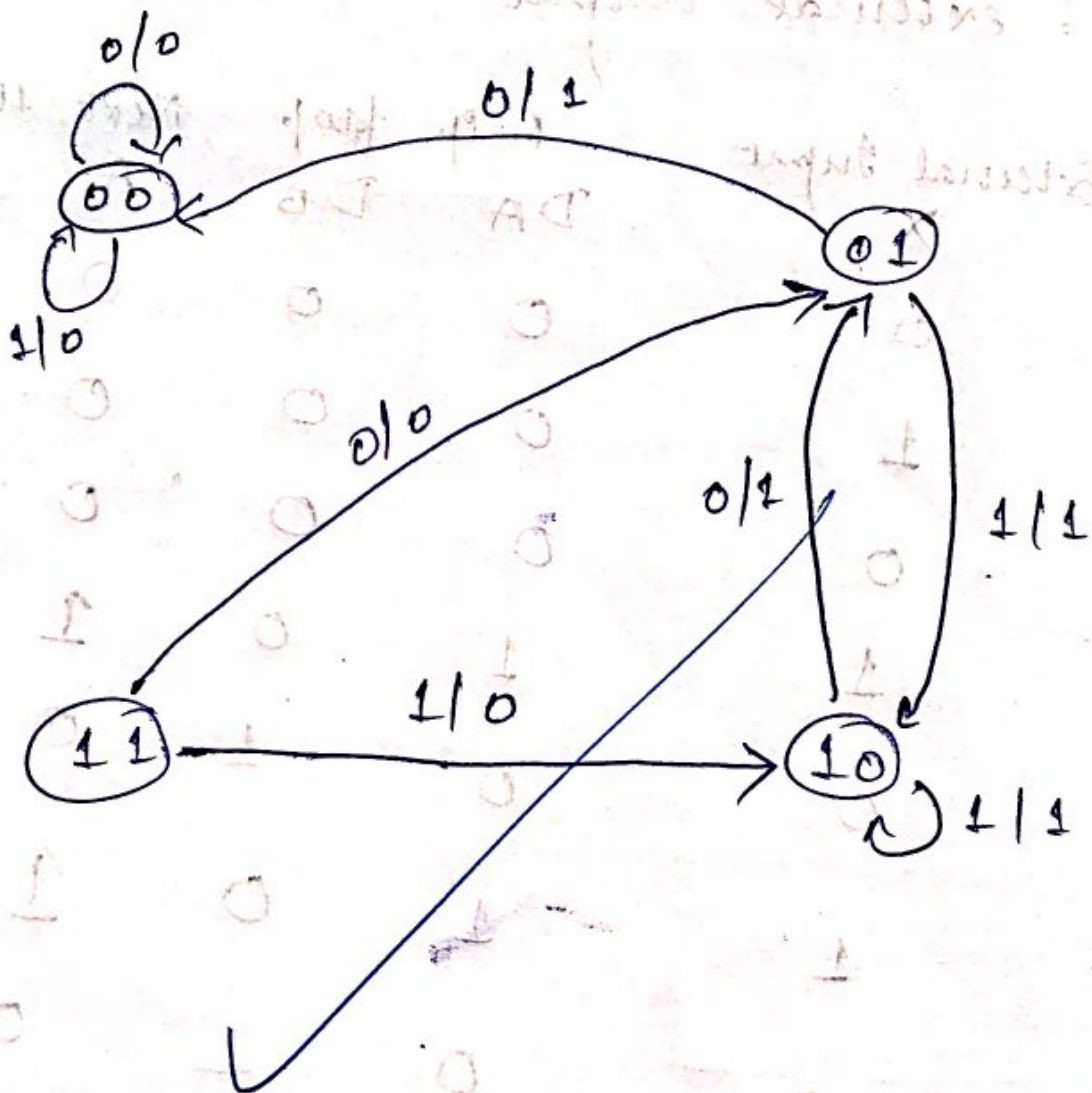 0/0
0/1
00
01
1/0
0/0
0/1
1/1
1/0
11
10
1/1